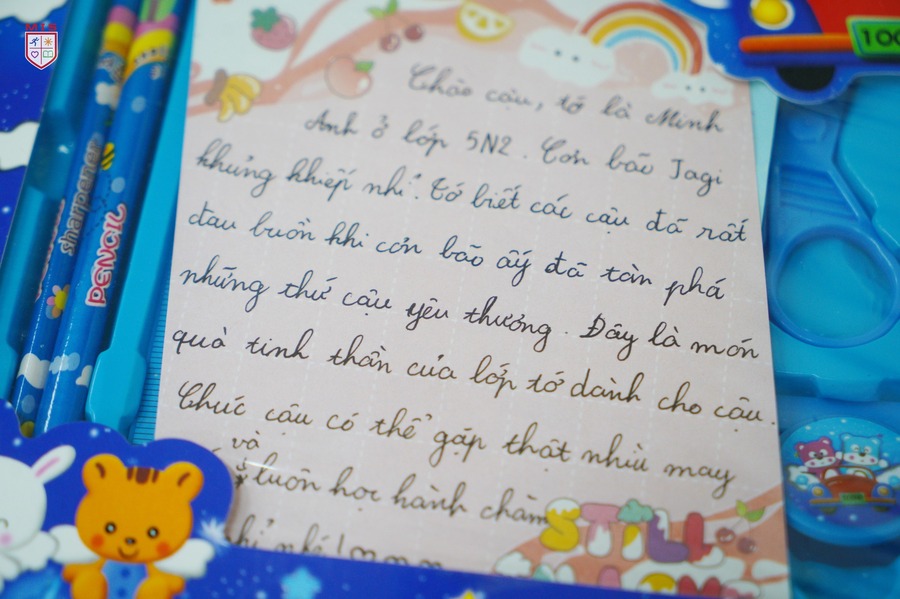 Chào cậu, tớ là Minh
Anh ở lớp 5N2. Cơn bão Jagi
khủng khiếp nhỉ. Tớ biết các cậu đã rất
đau buồn khi cơn bão ấy đã tàn phá
những thứ cậu yêu thương. Đây là món
quà tinh thần của lớp tớ dành cho cậu.
Chúc cậu có thể gặp thật nhìu may
và
luôn học hành chăm
nhé!
STILL
sharpener
PENCIL
100